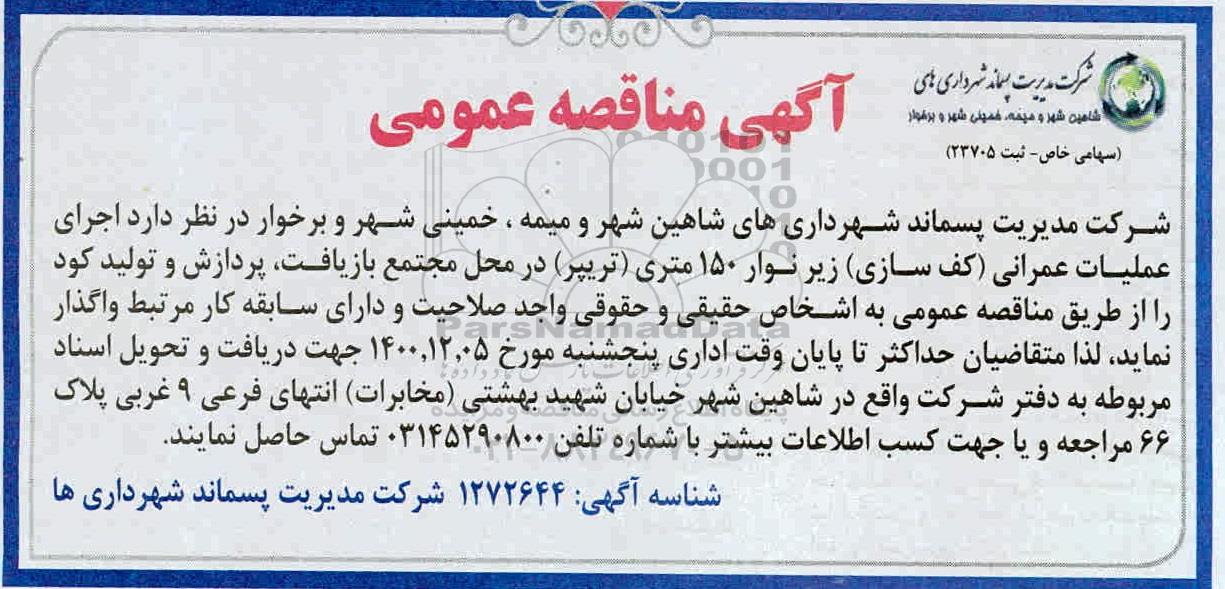 شرکت مدیریت پسماند شهرداری های
شاهین شهر و میمه، خمینی شهر و برخوار
(سهامی خاص- ثبت ۲۳۷۰۵)
آگهی مناقصه عمومی
شرکت مدیریت پسماند شهرداری های شاهین شهر و میمه ، خمینی شهر و برخوار در نظر دارد اجرای
عملیات عمرانی (کف سازی) زیر نوار ۱۵۰ متری (تریپر) در محل مجتمع بازیافت، پردازش و تولید کود
را از طریق مناقصه عمومی به اشخاص حقیقی و حقوقی واجد صلاحیت و دارای سابقه کار مرتبط واگذار
نماید، لذا متقاضیان حداکثر تا پایان وقت اداری پنجشنبه مورخ ۱۴۰۰,۱۲,۰۵ جهت دریافت و تحویل اسناد
مربوطه به دفتر شرکت واقع در شاهین شهر خیابان شهید بهشتی (مخابرات) انتهای فرعی ۹ غربی پلاک
۶۶ مراجعه و یا جهت کسب اطلاعات بیشتر با شماره تلفن ۰۳۱۴۵۲۹۰۸۰۰ تماس حاصل نمایند.
شناسه آگهی: ۱۲۷۲۶۴۴ شرکت مدیریت پسماند شهرداری ها
ParsNamadData